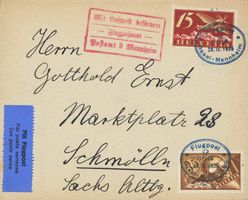 Mit Luftpost befördert
Flugpostamt
Postamt 2 Mannheim
15
HELVETIA
Basel-Mannheim
Herrn
Gotthold Ernst
Marktplatz 23
Schmölln
Sachs Altbg.
Mit Flugpost
Par poste aérienne
Con posta aerea
Flugpost